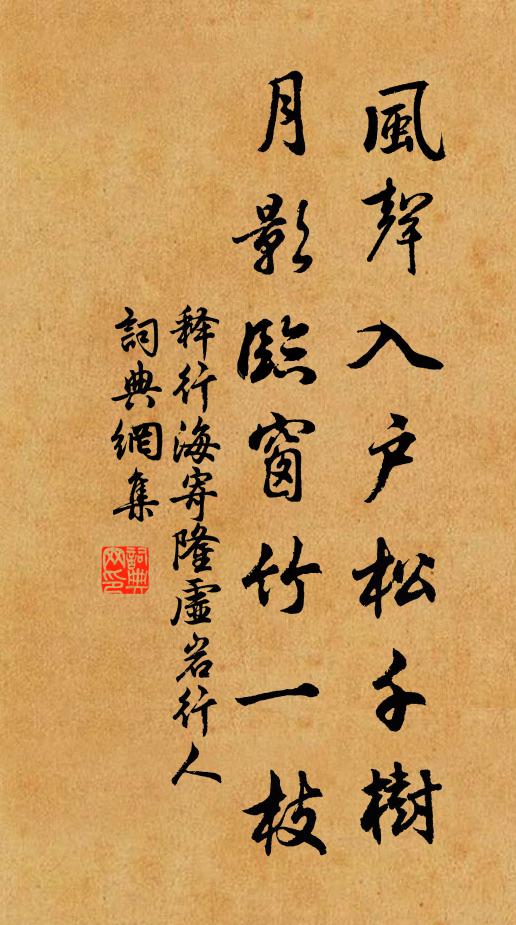 風聲入户松千樹
月影臨窗竹一枝
释行海寄隆虛岩行人
詞典網集
詞典網印